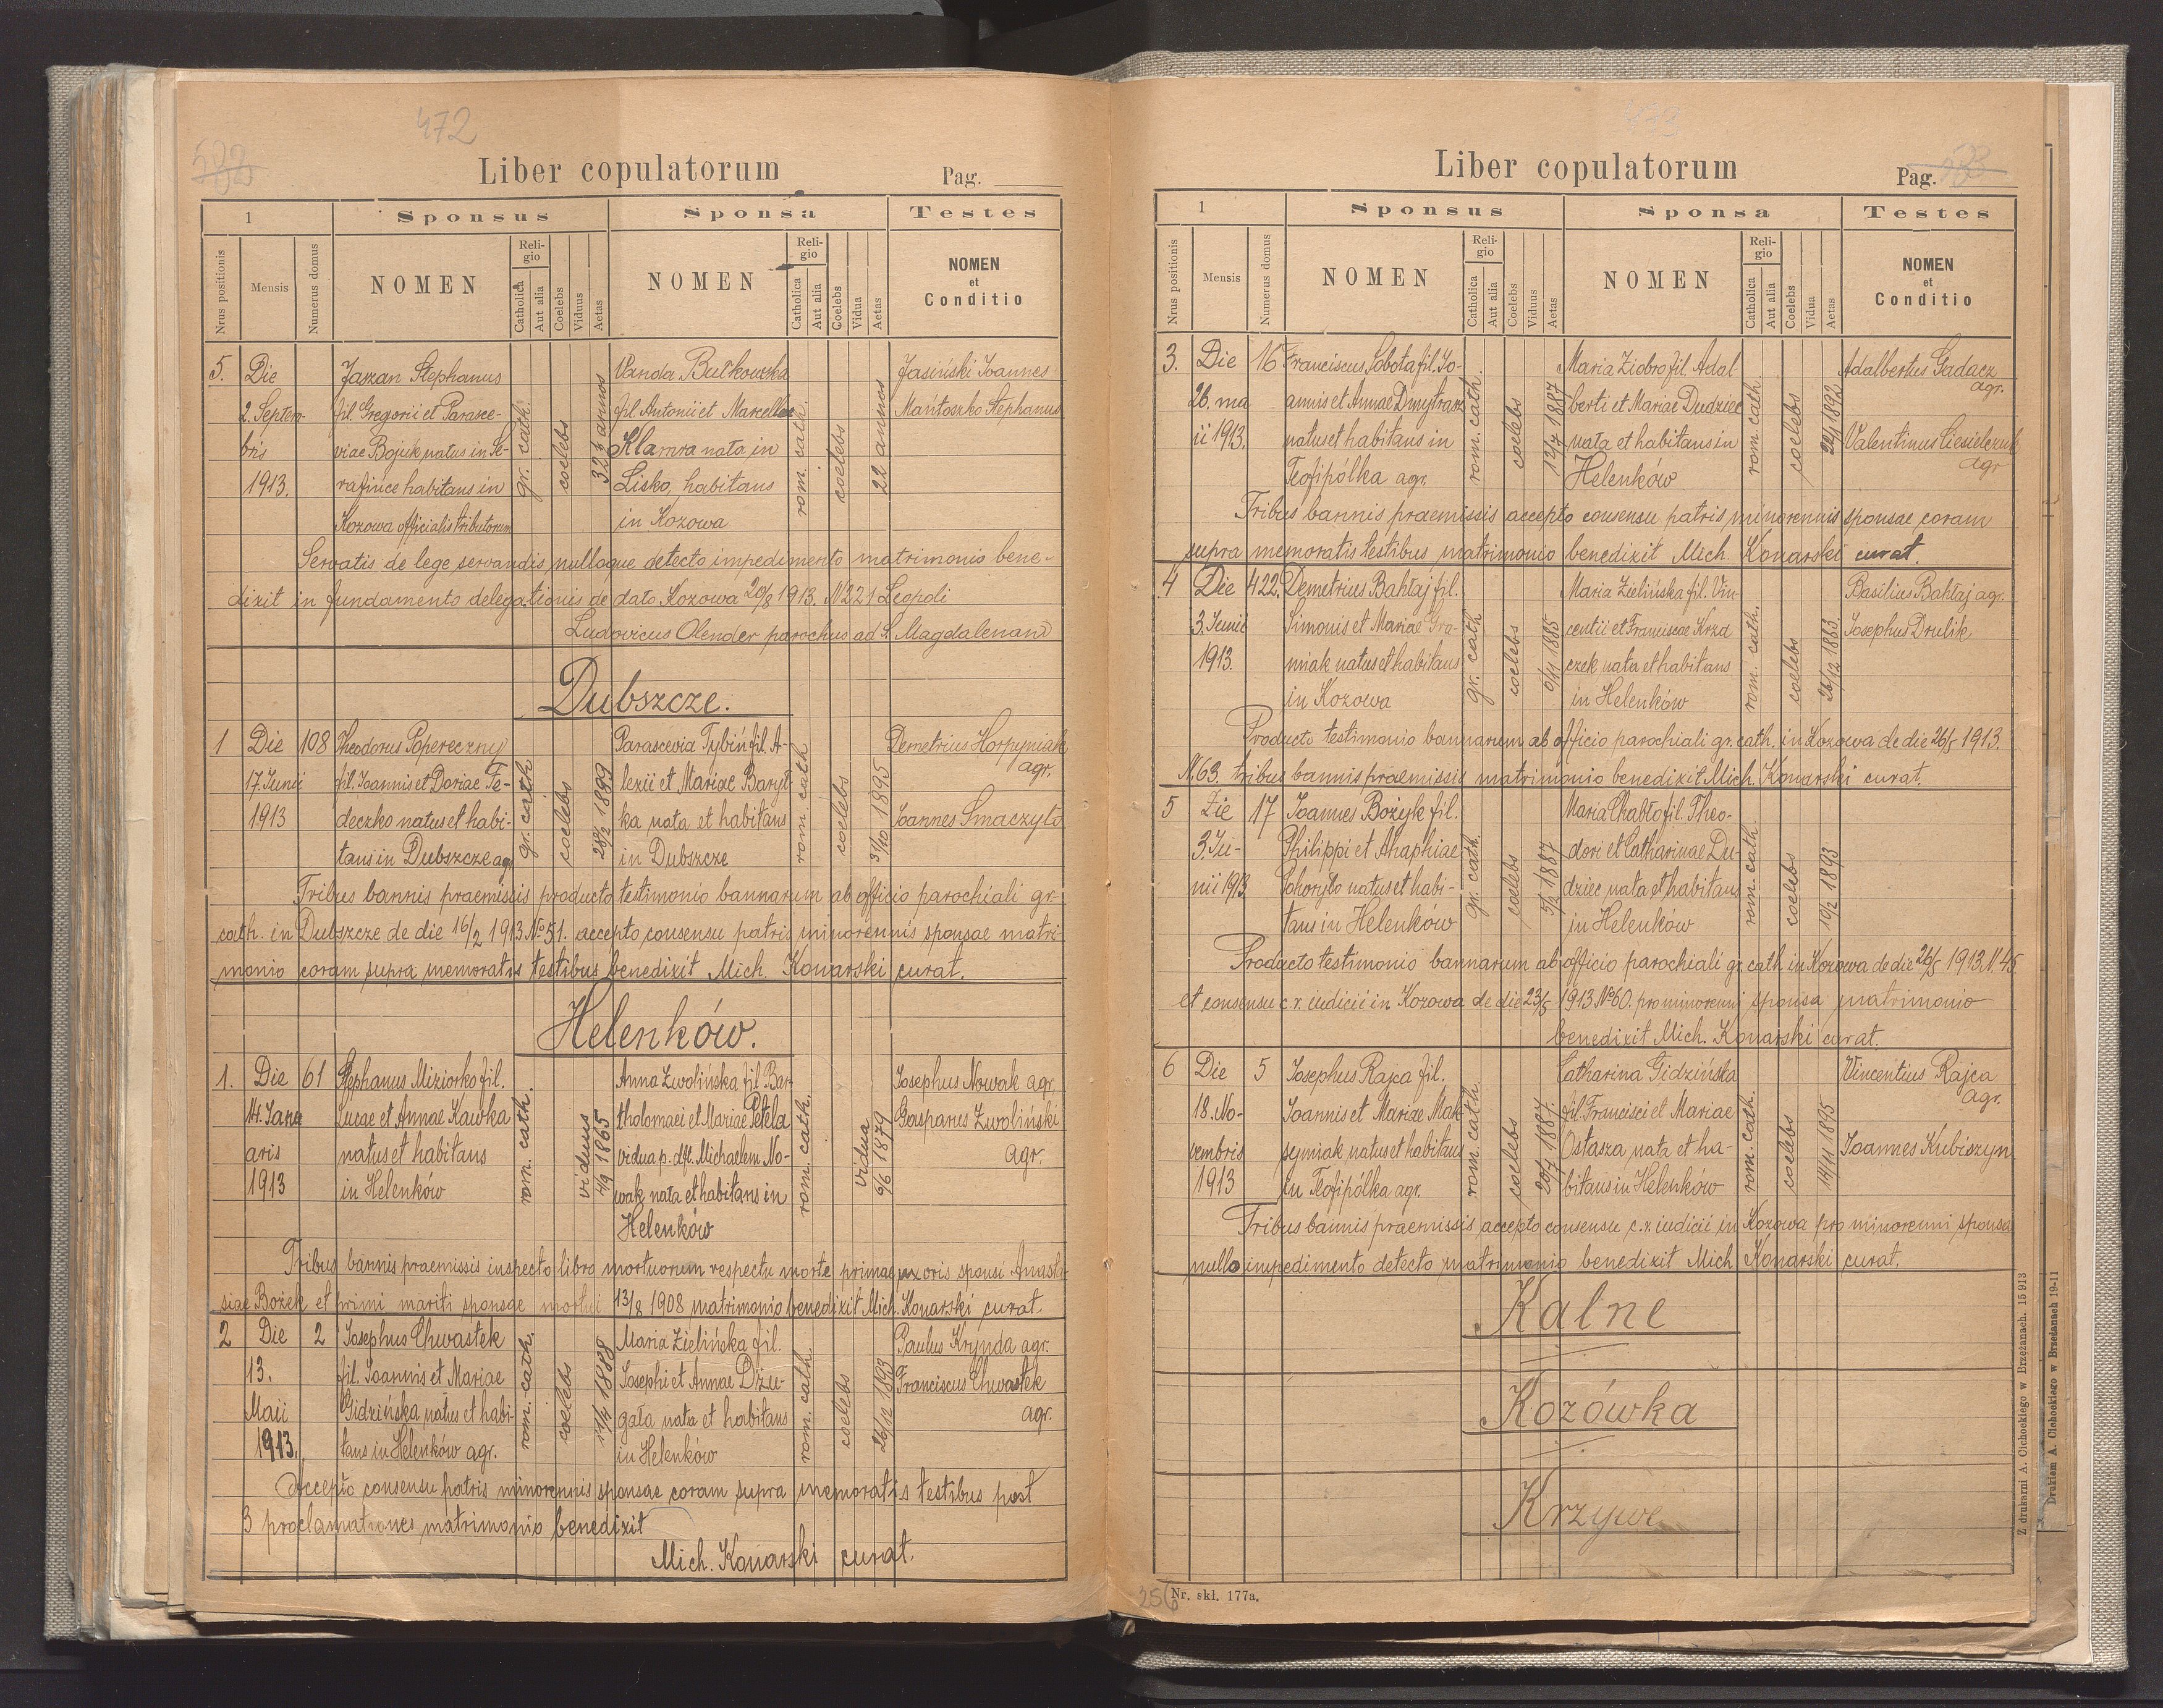 472
Liber copulatorum
Pag.
1
Sponsus
Sponsa
Testes
Nrus positionis
Mensis
Numerus domus
NOMEN
Religio
Catholica
Aut alia
Coelebs
Viduus
Aetas
NOMEN
Religio
Catholica
Aut alia
Coelebs
Vidua
Aetas
NOMEN
et
Conditio
5. Die Jaszan Stephanus Vanda Bułkowska Jasiński Joannes
2. Septem- fil. Gregorii et Parasce- fil. Antonii et Marcellae Mańtoszko Stephanus
bris viae Bojuk natus in Se- Klamra nata in
1913. rafińce habitans in Lisko, habitans
Kozowa officialis tributorum in Kozowa
gr. cath. coelebs rom. cath. coelebs 22 annos
Servatis de lege servandis nulloque detecto impedimento matrimonio bene-
dixit in fundamento delegationis de dato Kozowa 20/8 1913. N 221 Leopoli
Ludovicus Olender parochus ad S. Magdalenam
Dubszcze.
1 Die 108 Theodorus Popereczny Parascevia Tybiń fil. A- Demetrius Horpyniak
agr.
17. Junii fil. Joannis et Dariae Fe- lexii et Mariae Baryl-
1913 deczko natus et habi- ka nata et habitans Joannes Smaczyło
tans in Dubszcze agr. in Dubszcze
gr. cath coelebs 28/2 1899 rom. cath coelebs 31/10 1895
Tribus bannis praemissis producto testimonio bannarum ab officio parochiali gr.
cath. in Dubszcze de die 16/2 1913 No 51. accepto consensu patris minorennis sponsae matri-
monio coram supra memoratis testibus benedixit Mich. Konarski curat.
Helenków.
1. Die 61 Stephanus Miziorko fil. Anna Zwolińska fil. Bar- Josephus Nowak agr.
14. Janu Lucae et Annae Kawka tholomaei et Mariae Petela Gasparus Zwoliński
aris natus et habitans vidua p. dft. Michaelem No- agr.
1913 in Helenków wak nata et habitans in
Helenków
rom. cath. viduus 4/9 1865 rom. cath. vidua 6/6 1879
Tribus bannis praemissis inspecto libro mortuorum respectu morte primae uxoris sponsi Anasta
siae Bożek et primi mariti sponsae mortui 13/8 1908 matrimonio benedixit Mich. Konarski curat.
2 Die 2 Josephus Chwastek Maria Zielińska fil. Paulus Krynda agr.
13. fil. Joannis et Mariae Josephi et Annae Dżu- Franciscus Chwastek
Maii Gidzińska natus et habi- gała nata et habitans agr.
1913. tans in Helenków agr. in Helenków
rom. cath. coelebs rom. cath. coelebs 26/12 1893
Accepto consensu patris minorennis sponsae coram supra memoratis testibus post
3 proclamationes matrimonio benedixit
Mich. Konarski curat.
Liber copulatorum
Pag.
1
Sponsus
Sponsa
Testes
Nrus positionis
Mensis
Numerus domus
NOMEN
Religio
Catholica
Aut alia
Coelebs
Viduus
Aetas
NOMEN
Religio
Catholica
Aut alia
Coelebs
Vidua
Aetas
NOMEN
et
Conditio
3. Die 16 Franciscus Sobota fil. Jo- Maria Ziobro fil. Adal Adalbertus Gadacz
agr.
26. ma annis et Annae Dmytrasz berti et Mariae Dudziec
ii 1913. natus et habitans in nata et habitans in Valentinus Ciesielczuk
Teofipólka agr. Helenków agr
rom. cath. coelebs 13/7 1887 rom. cath. coelebs 22/1 1892
Tribus bannis praemissis accepto consensu patris minorennis sponsae coram
supra memoratis testibus matrimonio benedixit Mich. Konarski curat.
4 Die 422. Demetrius Bahłaj fil. Maria Zielińska fil. Vin- Basilius Bahłaj agr.
3. Junii Simonis et Mariae Gra- centii et Franciscae Krzd Josephus Drulik
1913. mniak natus et habitans czek nata et habitans
in Kozowa in Helenków
gr. cath coelebs 6/11 1885 rom. cath. coelebs 26/12 1883.
Producto testimonio bannarum ab officio parochiali gr. cath. in Kozowa de die 26/5 1913.
N. 63. tribus bannis praemissis matrimonio benedixit Mich. Konarski curat.
5 Die 17 Joannes Bożyk fil. Maria Chabło fil. Theo-
3. Ju- Philippi et Ahaphiae dori et Catharinae Du-
nii 1913 Pohoryło natus et habi- dziec nata et habitans
tans in Helenków in Helenków
gr. cath. coelebs 5/2 1887 rom. cath. coelebs 10/2 1893
Producto testimonio bannarum ab officio parochiali gr. cath in Kozowa de die 26/5 1913. N. 45.
et consensu c. r. iudicii in Kozowa de die 23/5 1913. No 60. pro minorenni sponsa matrimonio
benedixit Mich. Konarski curat.
6 Die 5 Josephus Rajca fil. Catharina Gidzińska Vincentius Rajca
agr.
18. No- Joannis et Mariae Mak- fil Francisci et Mariae
vembris symiak natus et habitans Ostasza nata et ha- Joannes Kubiszyn
1913 in Teofipólka agr. bitans in Helenków
rom. cath. coelebs 20/7 1887. rom. cath. coelebs 14/11 1895
Tribus bannis praemissis accepto consensu c. r. iudicii in Kozowa pro minorenni sponsa
nullo impedimento detecto matrimonio benedixit Mich Konarski curat.
Kalne
Kozówka
Krzywe
Z drukarni A. Cichockiego w Brzeżanach. 15 913
Drukiem A. Cichockiego w Brzeżanach 19-11
256
Nr. skł. 177a.